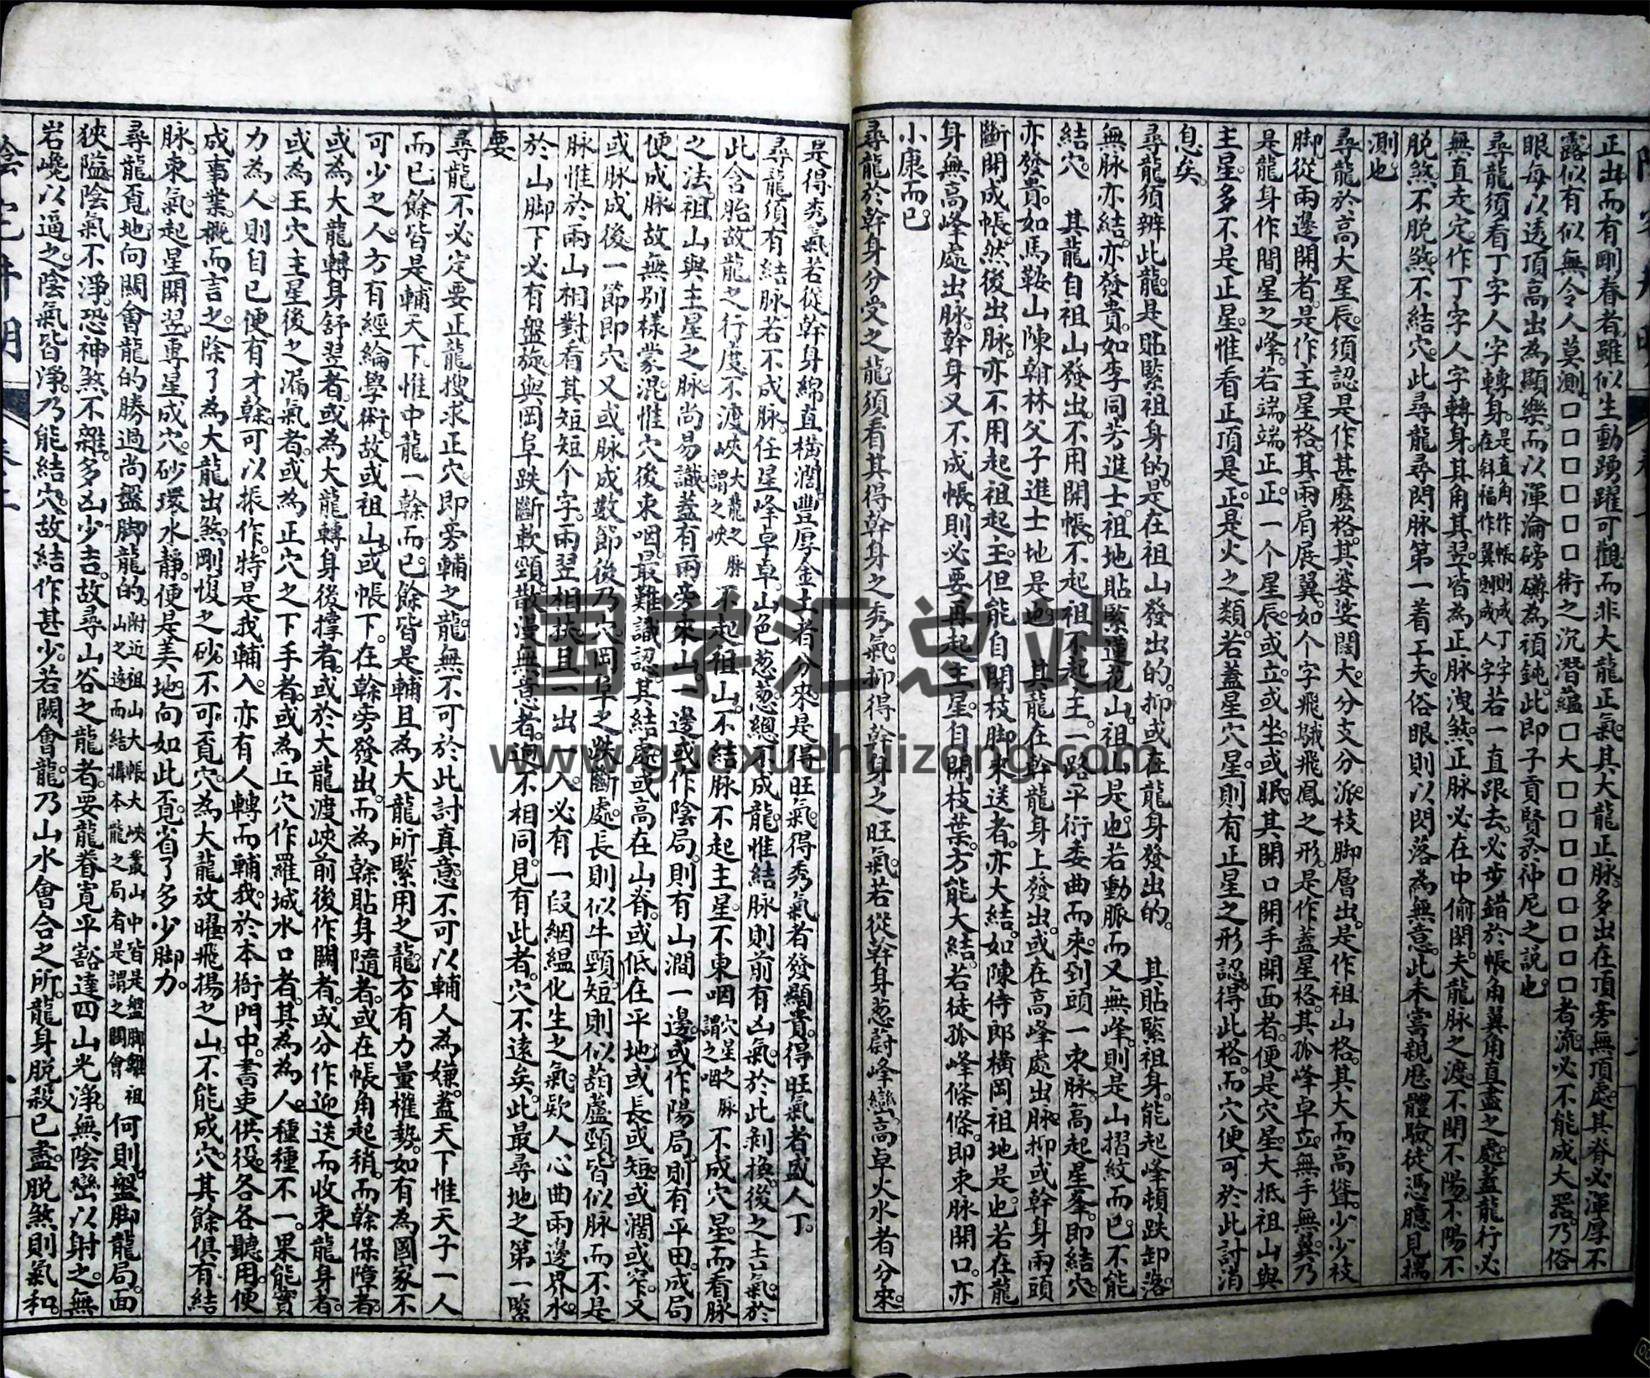 正出而有剛脊者雖似生動踴躍可觀而非大龍正氣其大龍正脉多出在頂旁無頂處其脊必渾厚不
露似有似無令人莫測口口口口口口術之沉潛蘊口大口口口口口口口者流必不能成大器乃俗
眼每以透頂高出為顯樂而以渾淪磅礴為頑鈍此即子貢賢於仲尼之說也
尋龍須看丁字人字轉身是直角作帳則成丁字在斜福作翼則成人字若一直跟去必步錯於帳角翼角直盡之處蓋龍行必
無直走定作丁字人字轉身其角其翌皆為正脉洩煞正脉必在中偷閑夫龍脉之渡不閉不陽不陽不
脱煞不脱煞不結穴此尋龍尋閃脉第一着工夫俗眼則以閃落為無意此未嘗親歷體驗徒憑臆見揣
測也
尋龍於高大星辰須認是作甚麽格其婆娑闊大分支分派枝脚層出是作祖山格其大而高聳少少枝
脚從兩邊開者是作主星格其兩肩展翼如个字飛鵝飛鳳之形是作蓋星格其孤峰卓立無手無翼乃
是龍身作間星之峰若端端正正一个星辰或立或坐或眠其開口開手開面者便是穴星大抵祖山與
主星多不是正星惟看正頂是正是火之類若蓋星穴星則有正星之形認得此格而穴便可於此討消
息矣
尋龍須辨此龍是貼緊祖身的是在祖山發出的抑或在龍身發出的 其貼緊祖身能起峰頓跌卸落
無脉亦結亦發貴如李同芳進士祖地貼緊蓮花山祖山是也若動脈而又無峰則是山摺紋而已不能
結穴 其龍自祖山發出不用開帳不起祖不起主一路平衍委曲而來到頭一束脉高起星峯即結穴
亦發貴如馬鞍山陳翰林父子進士地是也 其龍在幹龍身上發出或在高峰處出脉抑或幹身兩頭
斷開成帳然後出脉亦不用起祖起主但能自開枝脚來送者亦大結如陳侍郎橫岡祖地是也若在龍
身無高峰處出脉幹身又不成帳則必要再起主星自開枝葉方能大結若徒孤峰條條即束脉開口亦
小康而已
尋龍於幹身分受之龍須看其得幹身之秀氣抑得幹身之旺氣若從幹身葱蔚峰巒高卓火水者分來
是得秀氣若從幹身綿直橫濶豐厚金土者分來是得旺氣得秀氣者發顯貴得旺氣者盛人丁
尋龍須有結脉若不成脉任星峰卓卓山色葱葱總不成龍惟結脉則前有凶氣於此剥換後之吉氣於
此含胎故龍之行度不渡峽大龍之脉謂之峽不起祖山不結脉不起主星不束咽穴星之脉謂之咽不成穴星而看脉
之法祖山與主星之脉尚易識蓋有兩旁來山一邊或作陰局則有山澗一邊或作陽局則有平田成局
便成脉故無别樣蒙混惟穴後束咽最難識認其結處或高在山脊或低在平地或長或短或濶或窄又
或脉成後一節即穴又或脉成數節後乃穴岡阜之跌斷處長則似牛頸短則似葫蘆頸皆似脉而不是
脉惟於兩山相對看其短短个字兩翌相扶且一出一入必有一段絪緼化生之氣歎人心曲兩邊界水
於山脚下必有盤旋與岡阜跌斷軟頸散漫無意者廻不相同見有此者穴不遠矣此最尋地之第一緊
要
尋龍不必定要正龍搜求正穴即旁輔之龍無不可於此討真意不可以輔人為嫌蓋天下惟天子一人
而已餘皆是輔天下惟中龍一幹而已餘皆是輔且為大龍所緊用之龍方有力量權勢如有為國家不
可少之人方有經綸學術故或祖山或帳下在幹旁發出而為幹貼身隨者或在帳角起稍而幹保障者
或為大龍轉身舒翌者或為大龍轉身後撑者或於大龍渡峽前後作關者或分作迎送而收束龍身者
或為王穴主星後之漏氣者或為正穴之下手者或為丘穴作羅城水口者其為為人種種不一果能實
力為人則自已便有才幹可以振作特是我輔人亦有人轉而輔我於本衙門中書吏供役各各聽用便
成事業概而言之除了為大龍出煞剛愎之砂不可覓穴為大龍放曜飛揚之山不能成穴其餘俱有結
脉束氣起星開翌専星成穴砂環水靜便是美地向如此覓省了多少脚力
尋龍覓地向關會龍的勝過尚盤脚龍的附近祖山大帳大峽叢山中皆是盤脚離祖山之遠而結搆本龍之局者是謂之關會何則盤脚龍局面
狹隘陰氣不淨恐神煞不離多凶少吉故尋山谷之龍者要龍眷寬平豁達四山光淨無陰巒以射之無
岩巉以逼之陰氣皆淨乃能結穴故結作甚少若闕會龍乃山水會合之所龍身脱殺已盡脱煞則氣和
陰宅井明 卷上
国学汇总站
www.guoxuehuizong.com